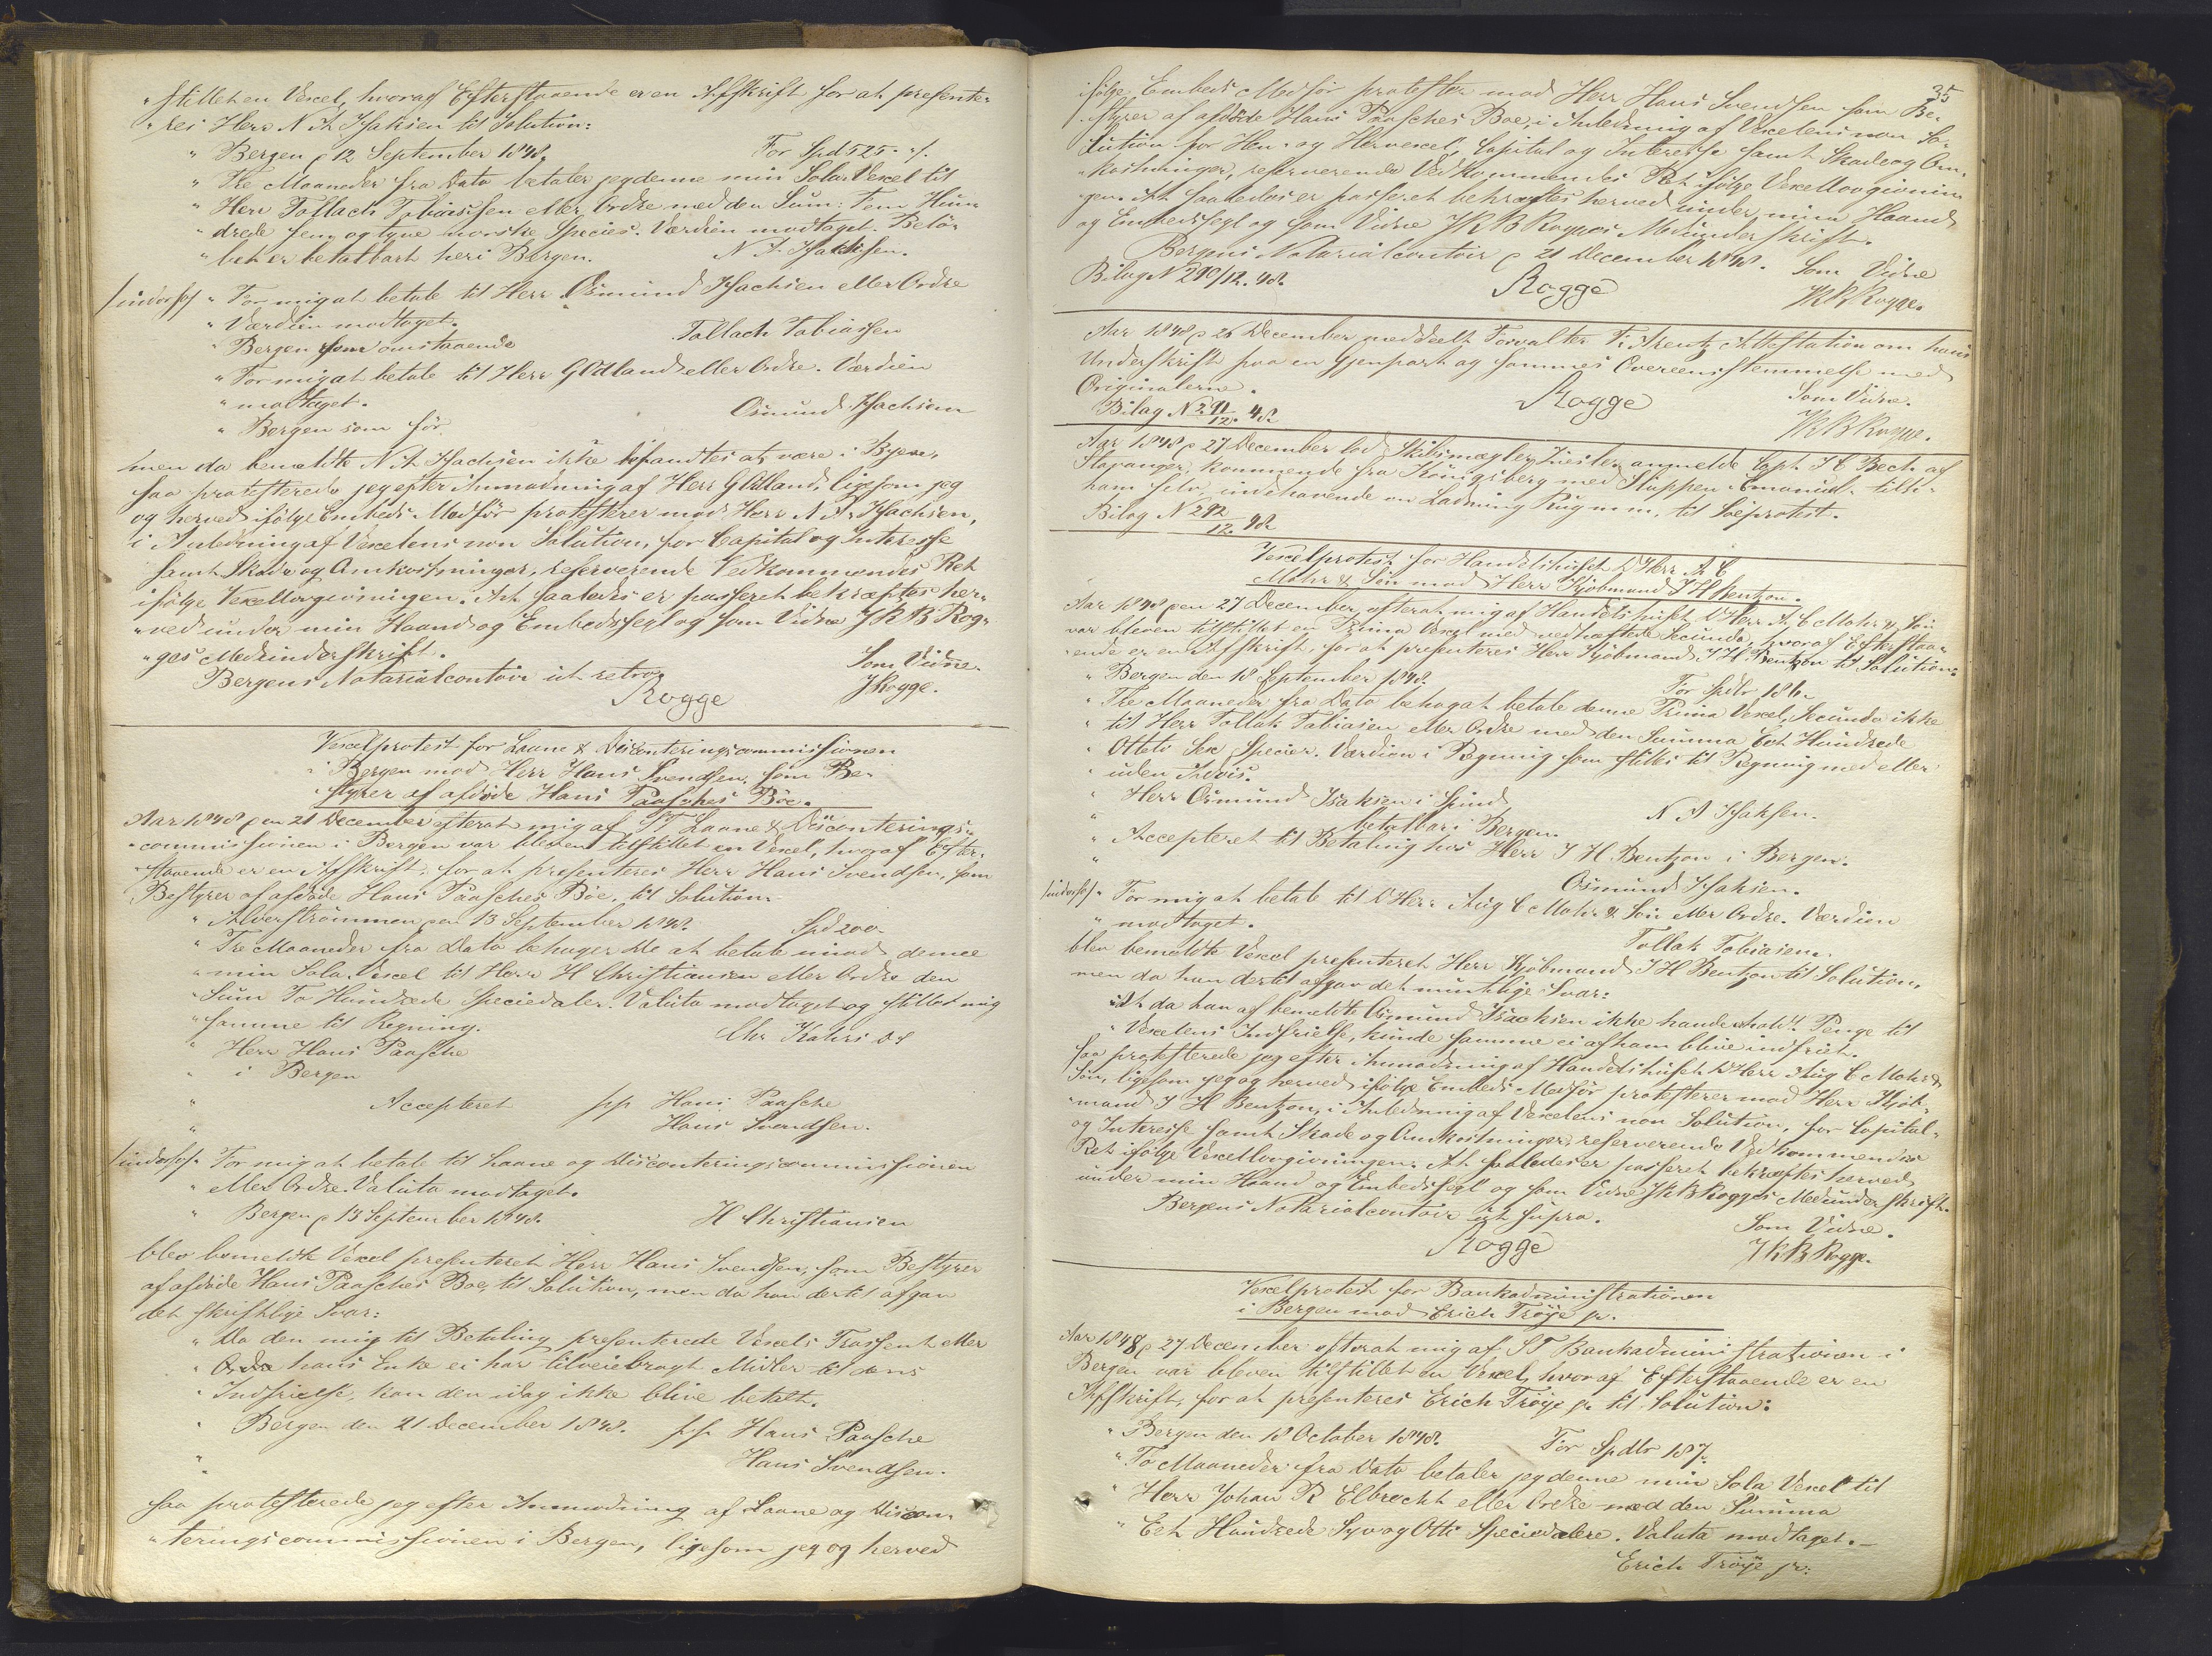 "stillet en Vexel, hvoraf Efterstaaende er en Afskrift for at presente-
"res Herr N A Isaksen til Solution:
" Bergen p 12 September 1848. For Spd 525 " /.
" Tre Maaneder fra Dato betaler jeg denne min Sola Vexel til
" Herr Tollach Tobiassen eller Ordre med den Sum: Fem Hun-
" drede fem og tyve norske Species. Værdien modtaget. Belø-
" bet er betalbart her i Bergen. N A Isaksen.
/indosso/ " For mig at betale til Herr Osmund Isachsen eller Ordre
" Værdien modtaget.
" Bergen som omstaaende Tollach Tobiassen
" For mig at betale til Herr G Odland eller Ordre. Værdien
" modtaget.
" Bergen som før Osmund Isachsen
men da bemeldte N A Isachsen ikke befandtes at være i Byen,
saa protesterede jeg efter Anmodning af Herr G Odland, ligesom jeg
og herved ifølge Embeds Medfør protesterer mod Herr N A Isachsen,
i Anledning af Vexelens non Solution, for Capital og Interesse
samt Skade og Omkostninger, reserverende Vedkommendes Ret
ifølge Vexellovgivningen. At saaledes er passeret bekræftes her-
"ved under min Haand og Embedssegl og som Vidne J K B Rog-
"ges Medunderskrift.
Bergens Notarialcontoir ut retro Som Vidne.
Rogge J Rogge.
Vexelprotest for Laane & Disconteringscommissionen
i Bergen mod Herr Hans Svendsen, som Be-
styrer af afdøde Hans Paasches Boe.
Aar 1848 pen 21 December efterat mig af ST Laane & Disconterings-
"commissionen i Bergen var bleven tilstillet en Vexel, hvoraf Efter-
"staaende er en Afskrift, for at presenteres Herr Hans Svendsen, som
Bestyrer af afdøde Hans Paasches Boe, til Solution:
" Alverstrømmen pen 13 September 1848. Spd 200
" Tre Maaneder fra Dato behager De at betale imod denne
" min Sola Vexel til Herr H Christiansen eller Ordre den
" Sum To Hundrede Speciedaler. Valuta modtaget og stillet mig
" samme til Regning.
" Herr Hans Paasche Chr Kahrs
" i Bergen
" Accepteret pp Hans Paasche
" Hans Svendsen.
/indosso/ " For mig at betale til Laane og Disconteringscommissionen
" eller Ordre. Valuta modtaget.
" Bergen p 13 September 1848. H Christiansen
blev bemeldte Vexel presenteret Herr Hans Svendsen, som Bestyrer
af afdøde Hans Paasches Boe, til Solution, men da han dertil afgav
det skriftlige Svar:
" Da den mig til Betaling presenterede Vexels Trassent eller
" hans Enke ei har tilveiebragt Midler til dens
" Indfrielse, kan den idag ikke blive betalt.
" Bergen den 21 December 1848. pp Hans Paasche
" Hans Svendsen.
saa protesterede jeg efter Anmodning af Laane og Discon-
"teringscommissionen i Bergen, ligesom jeg og herved
35
ifølge Embeds Medfør protester mod Herr Hans Svendsen som Be-
"styrer af afdøde Hans Paasches Boe, i Anledning af Vexelens non So-
"lution for Hen- og Hervexel, Capital og Interesse samt Skade og Om-
"kostninger, reserverende Vedkommendes Ret ifølge Vexellovgivnin-
"gen. At saaledes er passeret bekræftes herved under min Haand
og Embedssegl og som Vidne J K B Rogges Medunderskrift.
Bergens Notarialcontoir p 21 December 1848. Som Vidne
Bilag N 290/12. 48. Rogge J K B Rogge.
Aar 1848 p 26 December meddeelt Forvalter F. Arentz Attestation om hans
Underskrift paa en Gjenpart og sammes Overeensstemmelse med
Originalerne. Som Vidne.
Bilag N 291/12. 48 Rogge J K B Rogge.
Aar 1848 p 27 December lod Skibsmægler anmelde Capt. J C Bech af
Stavanger, kommende fra Königsberg med Skuppen Emanuel tilh:
ham selv, indehavende en Ladning Rug m.m, til Søeprotest.
Bilag N 292/12. 48
Vexelprotest for Handelshuset D'Herr A C
Mohr & Søn mod Herr Kjøbmand J H Bentzon.
Aar 1848 pen 27 December, efterat mig af Handelshuset D'Herr A C Mohr & Søn
var bleven tilstillet en Prima Vexel med vedhæftede Secunda, hvoraf Efterstaa-
"ende er en Afskrift, for at presenteres Herr Kjøbmand J H Bentzon til Solution:
" Bergen den 18 September 1848. For Spdlr 186
" Tre Maaneder fra Dato behag at betale denne Prima Vexel, Secunda ikke
" til Herr Tollak Tobiasen eller Ordre med den Summa Eet Hundrede
" Otteti Sex Species. Værdien i Regning som stilles til Regning med eller
" uden Advis.
" Herr Osmund Isaksen i Spind N A Isaksen.
" betalbar i Bergen.
" Accepteret til Betaling hos Herr J H Bentzon i Bergen.
" Osmund Isaksen.
/indosso/ " For mig at betale til D'Herr Aug C Mohr & Søn eller Ordre. Værdien
" modtaget. Tollak Tobiasen.
blev bemeldte Vexel presenteret Herr Kjøbmand J H Bentzon til Solution,
men da han dertil afgav det mundtlige Svar:
"at da han af bemeldte Osmund Isachsen ikke havde erholdt Penge til
" Vexelens Indfrielse, kunde samme ei af ham blive indfriet.
saa protesterede jeg efter Anmodning af Handelshuset D'Herr Aug C Mohr &
Søn, ligesom jeg og herved ifølge Embeds Medfør protesterer mod Herr Kjøb-
"mand J H Bentzon, i Anledning af Vexelens non Solution, for Capital
og Interesse samt Skade og Omkostninger, reserverende Vedkommendes
Ret ifølge Vexellovgivningen. At saaledes er passeret bekræftes herved
under min Haand og Embedssegl og som Vidne J K B Rogges Medunderskrift.
Bergens Notarialcontoir ut supra. Som Vidne.
Rogge J K B Rogge.
Vexelprotest for Bankadministrationen
i Bergen mod Erich Trøye jr.
Aar 1848 p 27 December efterat mig af ST Bankadministrationen i
Bergen var bleven tilstillet en Vexel, hvoraf Efterstaaende er en
Afskrift, for at presenteres Erich Trøye jr til Solution:
" Bergen den 18 October 1848. For Spdlr 187.
" To Maaneder fra Dato betaler jeg denne min Sola Vexel til
" Herr Johan R Elbrecht eller Ordre med den Summa
" Eet Hundrede Syv og Otti Speciedalere. Valuta modtaget. _
Erich Trøye jr: